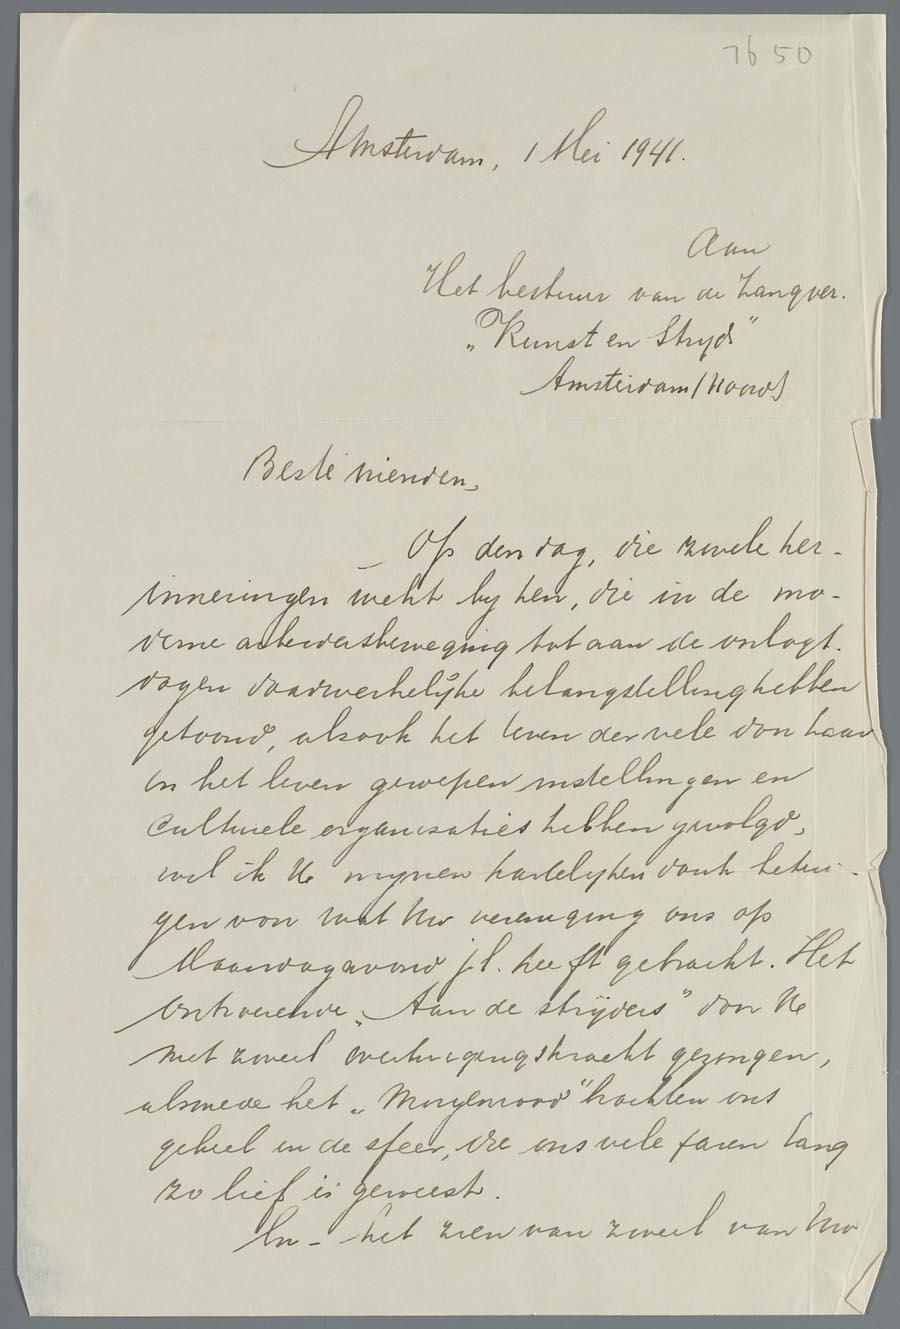 7b 50
Amsterdam, 1 Mei 1941.
Aan
Het bestuur van de Zangver.
„Kunst en Stryd"
Amsterdam (Noord)
Beste vrienden,
Op den dag, die zovele her-
inneringen wekt by hen, die in de mo-
derne arbeidersbeweging tot aan de oorlogs-
dagen daadwerkelijke belangstelling hebben
getoond, alsook het leven der vele door haar
in het leven geroepen instellingen en
Culturele organisaties hebben gevolgd,
wil ik U mynen hartelyken dank betui-
gen voor wat Uw vereniging ons op
Maandagavond j.l. heeft gebracht. Het
ontroerende „Aan de strijders" door U
met zoveel overtuigingskracht gezongen,
alsmede het „Morgenrood" brachten ons
geheel in de sfeer, die ons vele jaren lang
zo lief is geweest.
En - het zien van zoveel van Uw